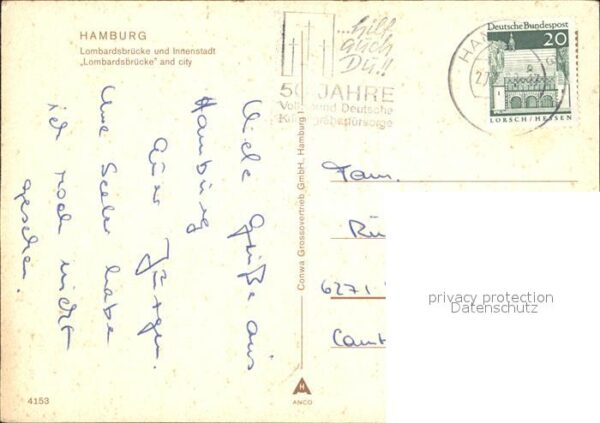 HAMBURG
Lombardsbrücke und Innenstadt
„Lombardsbrücke" and city
...hilf
auch
Du!!
50 JAHRE
Volksbund Deutsche
Kriegsgräberfürsorge
Deutsche Bundespost
20
LORSCH/HESSEN
HAM
Viele Grüße aus
Hamburg
Euer Jürgen.
Uwe Seeler habe
ich noch nicht
gesehen.
Conwa Grossovertrieb GmbH., Hamburg 1
Fam.
6271
privacy protection
Datenschutz
H
ANCO
4153